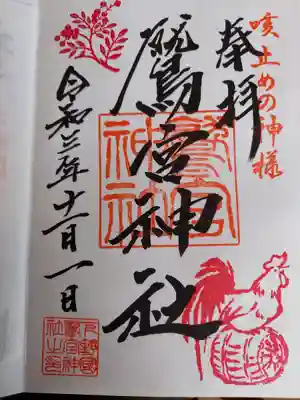 咳止めの神様
奉拝
鷲宮神社
鷲宮
神社
令和三年十一月一日
下野國
鷲宮神
社之印